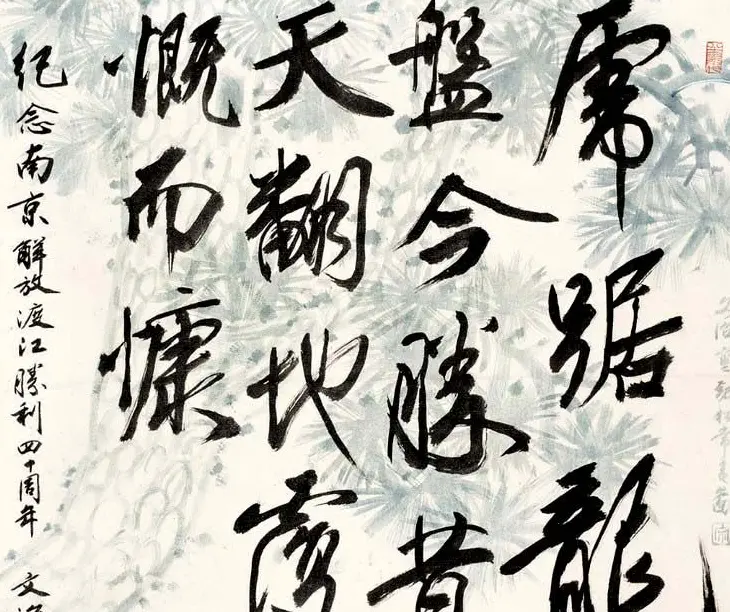 虎踞龍
盤今勝昔
天翻地覆
慨而慷
紀念南京解放渡江勝利四十周年 文